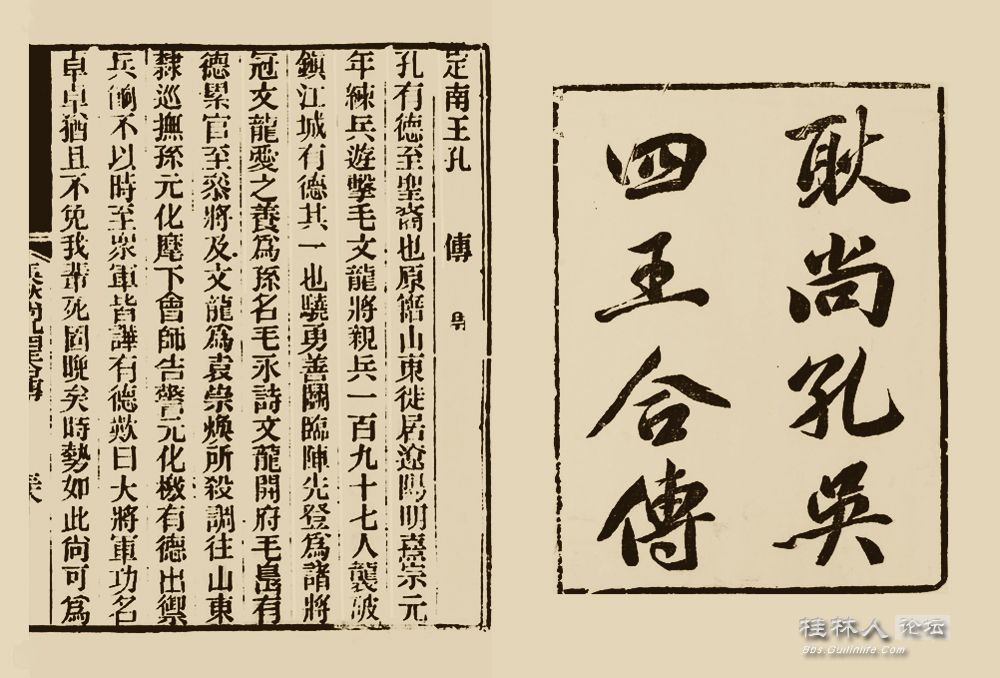 耿尚孔吳
四王合傳
定南王孔 傳
孔有德至聖裔也原籍山東徙居遼陽明熹宗元
年練兵遊擊毛文龍將親兵一百九十七人襲破
鎮江城有德其一也驍勇善鬭臨陣先登爲諸將
冠文龍愛之養爲孫名毛永詩文龍開府毛島有
德累官至叅將及文龍爲袁崇煥所殺調往山東
隸巡撫孫元化麾下會師告警元化檄有德出禦
兵餉不以時至衆軍皆譁有德歎曰大將軍功名
卓卓猶且不免我輩死固晚矣時勢如此尙可爲
桂林人论坛
Bbs.Guilinlife.com